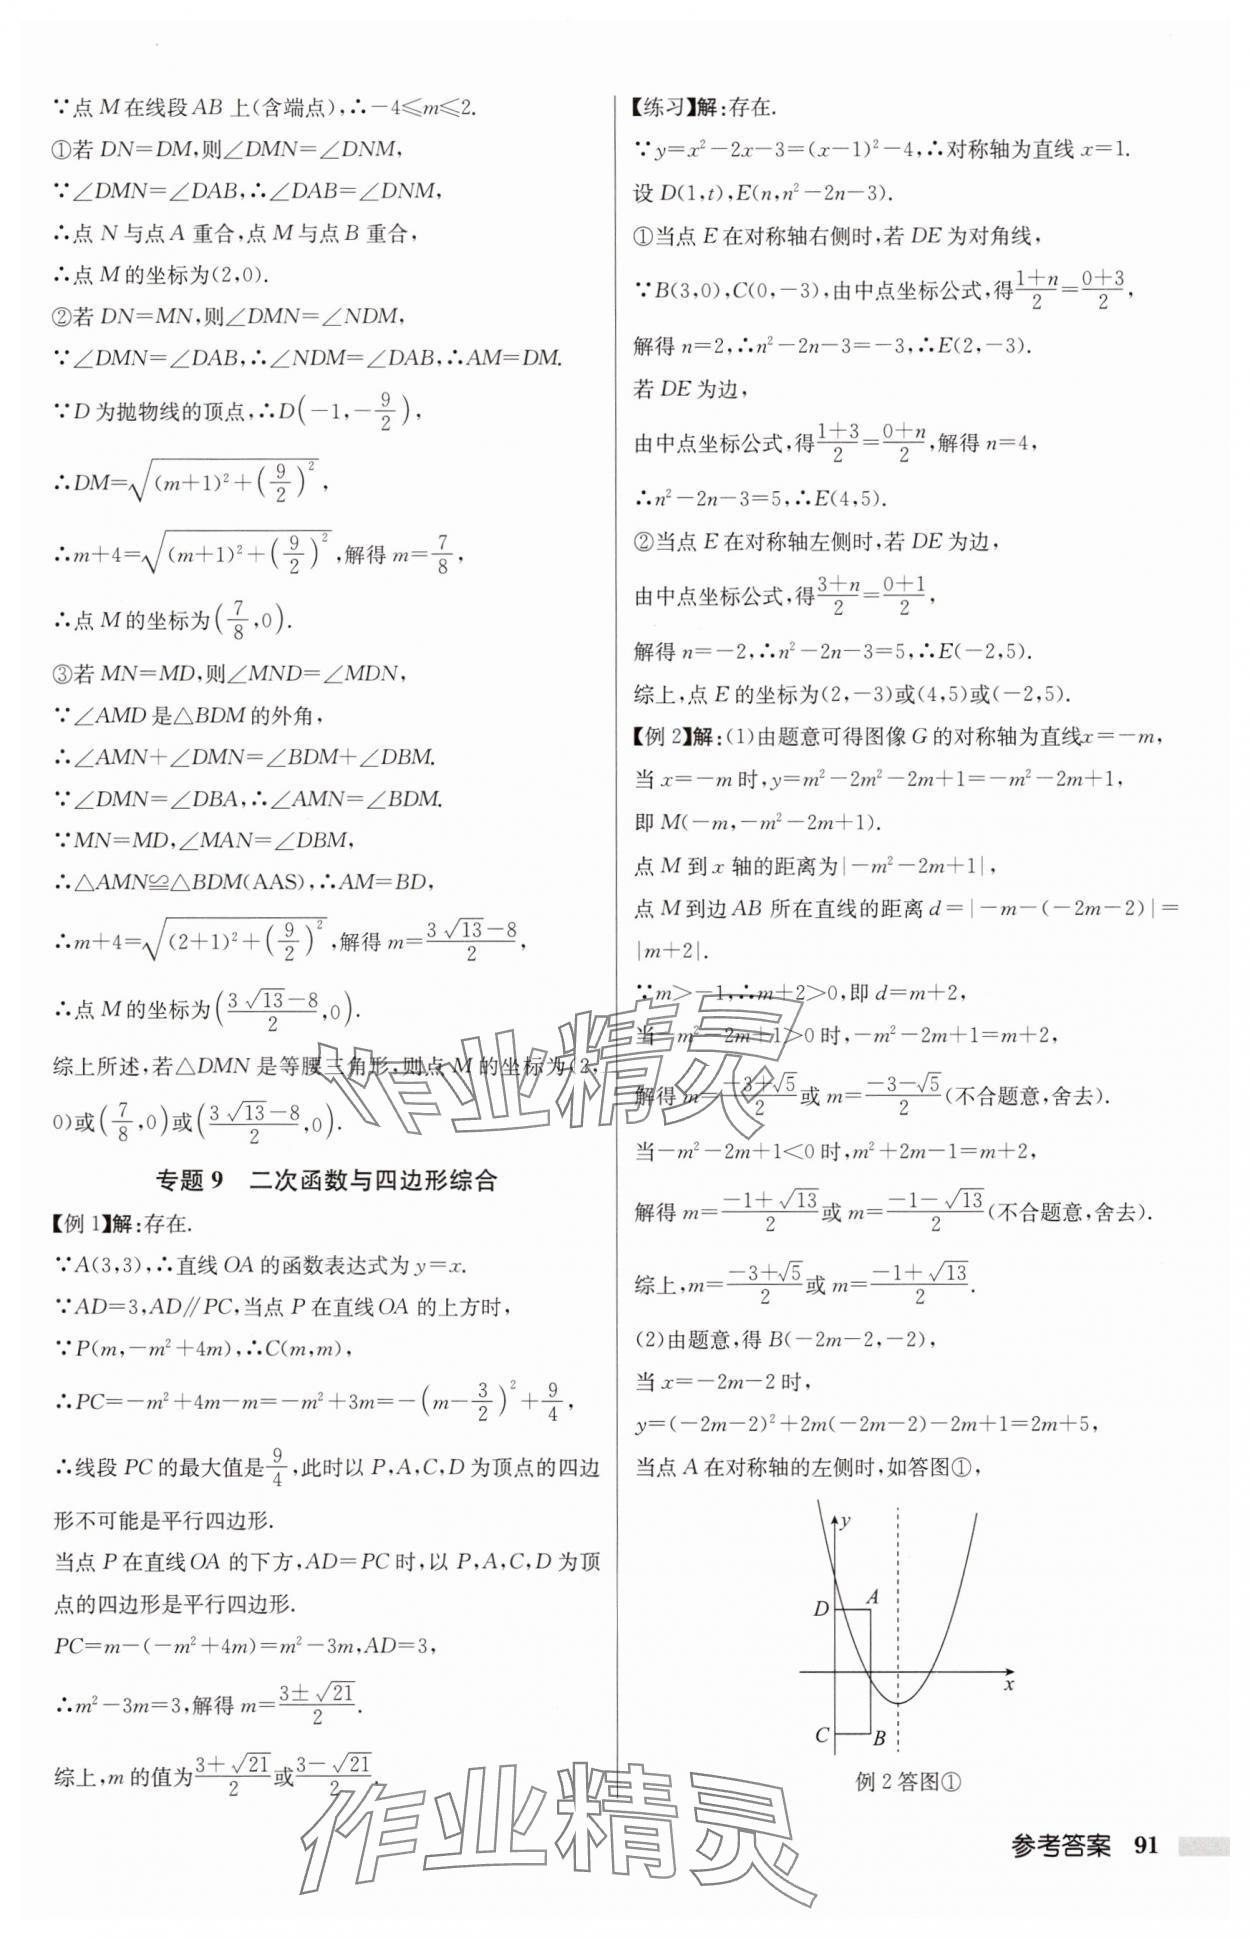 ∵点 M 在线段 AB 上(含端点),∴-4≤m≤2.
①若 DN=DM,则∠DMN=∠DNM,
∵∠DMN=∠DAB,∴∠DAB=∠DNM,
∴点 N 与点 A 重合,点 M 与点 B 重合,
∴点 M 的坐标为(2,0).
②若 DN=MN,则∠DMN=∠NDM,
∵∠DMN=∠DAB,∴∠NDM=∠DAB,∴AM=DM.
∵D 为抛物线的顶点,∴D(-1,-9/2),
∴DM=√((m+1)²+(9/2)²),
∴m+4=√((m+1)²+(9/2)²),解得 m=7/8,
∴点 M 的坐标为(7/8,0).
③若 MN=MD,则∠MND=∠MDN,
∵∠AMD 是△BDM 的外角,
∴∠AMN+∠DMN=∠BDM+∠DBM.
∵∠DMN=∠DBA,∴∠AMN=∠BDM.
∵MN=MD,∠MAN=∠DBM,
∴△AMN≌△BDM(AAS),∴AM=BD,
∴m+4=√((2+1)²+(9/2)²),解得 m=(3√13-8)/2,
∴点 M 的坐标为((3√13-8)/2,0).
综上所述,若△DMN 是等腰三角形,则点 M 的坐标为(2,
0)或(7/8,0)或((3√13-8)/2,0).
专题 9 二次函数与四边形综合
【例 1】解:存在.
∵A(3,3),∴直线 OA 的函数表达式为 y=x.
∵AD=3,AD∥PC,当点 P 在直线 OA 的上方时,
∵P(m,-m²+4m),∴C(m,m),
∴PC=-m²+4m-m=-m²+3m=-(m-3/2)²+9/4,
∴线段 PC 的最大值是9/4,此时以 P,A,C,D 为顶点的四边
形不可能是平行四边形.
当点 P 在直线 OA 的下方,AD=PC 时,以 P,A,C,D 为顶
点的四边形是平行四边形.
PC=m-(-m²+4m)=m²-3m,AD=3,
∴m²-3m=3,解得 m=(3±√21)/2.
综上,m 的值为(3+√21)/2或(3-√21)/2.
【练习】解:存在.
∵y=x²-2x-3=(x-1)²-4,∴对称轴为直线 x=1.
设 D(1,t),E(n,n²-2n-3).
①当点 E 在对称轴右侧时,若 DE 为对角线,
∵B(3,0),C(0,-3),由中点坐标公式,得(1+n)/2=(0+3)/2,
解得 n=2,∴n²-2n-3=-3,∴E(2,-3).
若 DE 为边,
由中点坐标公式,得(1+3)/2=(0+n)/2,解得 n=4,
∴n²-2n-3=5,∴E(4,5).
②当点 E 在对称轴左侧时,若 DE 为边,
由中点坐标公式,得(3+n)/2=(0+1)/2,
解得 n=-2,∴n²-2n-3=5,∴E(-2,5).
综上,点 E 的坐标为(2,-3)或(4,5)或(-2,5).
【例 2】解:(1)由题意可得图像 G 的对称轴为直线x=-m,
当 x=-m 时,y=m²-2m²-2m+1=-m²-2m+1,
即 M(-m,-m²-2m+1).
点 M 到 x 轴的距离为|-m²-2m+1|,
点 M 到边 AB 所在直线的距离 d=|-m-(-2m-2)|=
|m+2|.
∵m>-1,∴m+2>0,即 d=m+2,
当-m²-2m+1>0 时,-m²-2m+1=m+2,
解得 m=(-3+√5)/2或 m=(-3-√5)/2(不合题意,舍去).
当-m²-2m+1<0 时,m²+2m-1=m+2,
解得 m=(-1+√13)/2或 m=(-1-√13)/2(不合题意,舍去).
综上,m=(-3+√5)/2或 m=(-1+√13)/2.
(2)由题意,得 B(-2m-2,-2),
当 x=-2m-2 时,
y=(-2m-2)²+2m(-2m-2)-2m+1=2m+5,
当点 A 在对称轴的左侧时,如答图①,
y
D A
x
C B
例 2 答图①
参考答案 91
作业精灵
作业精灵